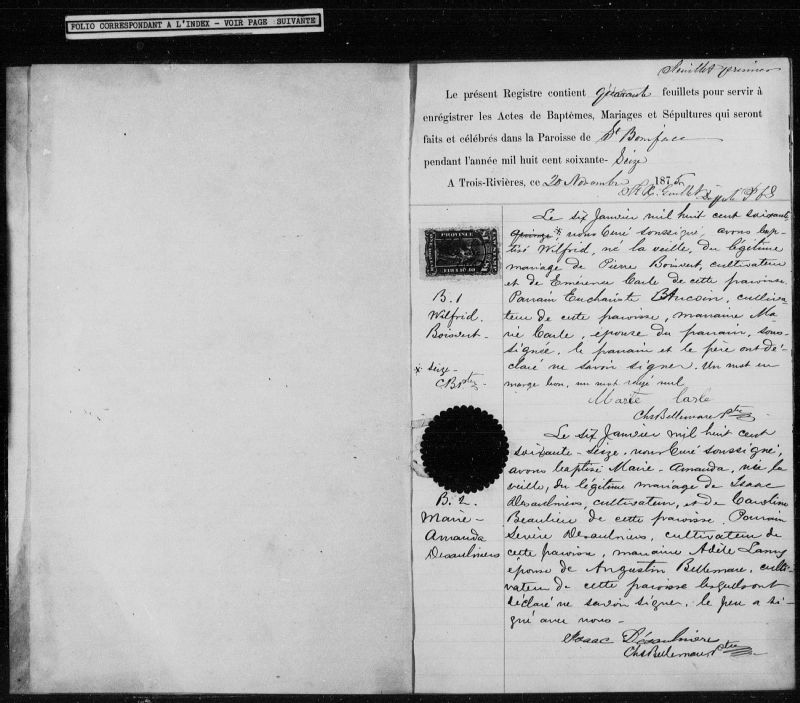 FOLIO CORRESPONDANT A L'INDEX - VOIR PAGE SUIVANTE
Feuillet premier
Le présent Registre contient quarante feuillets pour servir à
enregistrer les Actes de Baptêmes, Mariages et Sépultures qui seront
faits et célébrés dans la Paroisse de St Boniface
pendant l'année mil huit cent soixante- Seize
A Trois-Rivières, ce 20 Novembre 1875
Députe P
Le six Janvier mil huit cent soixante
quinze * nous Curé soussigné, avons bap-
tisé Wilfrid, né la veille, du légitime
mariage de Pierre Boisvert, cultivateur
et de Emérence Carle de cette paroisse.
Parrain Euchariste cultiva-
teur de cette paroisse, marraine Ma-
rie Carle, épouse du parrain, sous-
signée, le parrain et le père ont dé-
claré ne savoir signer. Un mot en
marge bon, un mot rayé nul
Marie Carle
Chs Bellemare Ptre
PROVINCE
B. 1
Wilfrid.
Boisvert-
* seize-
CB Ptre
Le six Janvier mil huit cent
soixante-seize, nous Curé soussigné,
avons baptisé Marie-Amanda, née la
veille, du légitime mariage de Isaac
Desaulniers, cultivateur, et de Caroline
Beaulieu de cette paroisse. Parrain
Sévère Desaulniers, cultivateur de
cette paroisse, marraine Adèle Lamy
épouse de Augustin Bellemare, culti-
vateur de cette paroisse lesquels ont
déclaré ne savoir signer. le père a si-
gné avec nous-
Isaac Désaulniers
Chs Bellemare Ptre
B. 2.
Marie-
Amanda
Desaulniers